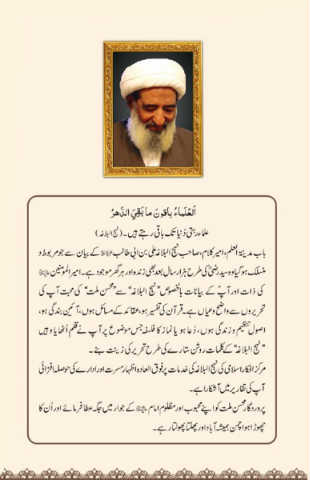 اَلْعُلَمَاءُ بَاقُونَ مَا بَقِيَ الدَّهْرُ
علماء رہتی دُنیا تک باقی رہتے ہیں۔ (نہج البلاغہ)
باب مدینۃ العلم، امیر کلام، صاحب نہج البلاغہ علی بن ابی طالب علیہ السلام کے بیان سے جو مربوط و
منسلک ہو گیا وہ سید رضیؒ کی طرح ہزار سال بعد بھی زندہ اور ہر گھر موجود ہے۔ امیر المومنین علیہ السلام
کی ذات اور آپؑ کے بیانات بالخصوص "نہج البلاغہ" سے "محسن ملت" کی محبت آپ کی
تحریروں سے واضح و عیاں ہے۔ قرآن کی تفسیر ہو، عقائد کے مسائل ہوں، آئین بندگی ہو،
اصول تنظیم و زندگی ہوں، دُعا ہو یا نماز کا فلسفہ جس موضوع پر آپ نے قلم اُٹھایا وہیں
"نہج البلاغہ" کے کلمات روشن ستارے کی طرح تحریر کی زینت بنے۔
مرکز افکار اسلامی کی نہج البلاغہ کی خدمات پر فوق العادہ اظہار مسرت اور ادارے کی حوصلہ افزائی
آپ کی تقاریر میں آشکار ہے۔
پروردگار محسن ملت کو اپنے محبوب اور مظلوم امام علیہ السلام کے جوار میں جگہ عطا فرمائے اور اُن کا
چھوڑا ہوا چمن ہمیشہ آباد اور پھلتا پھولتا رہے۔